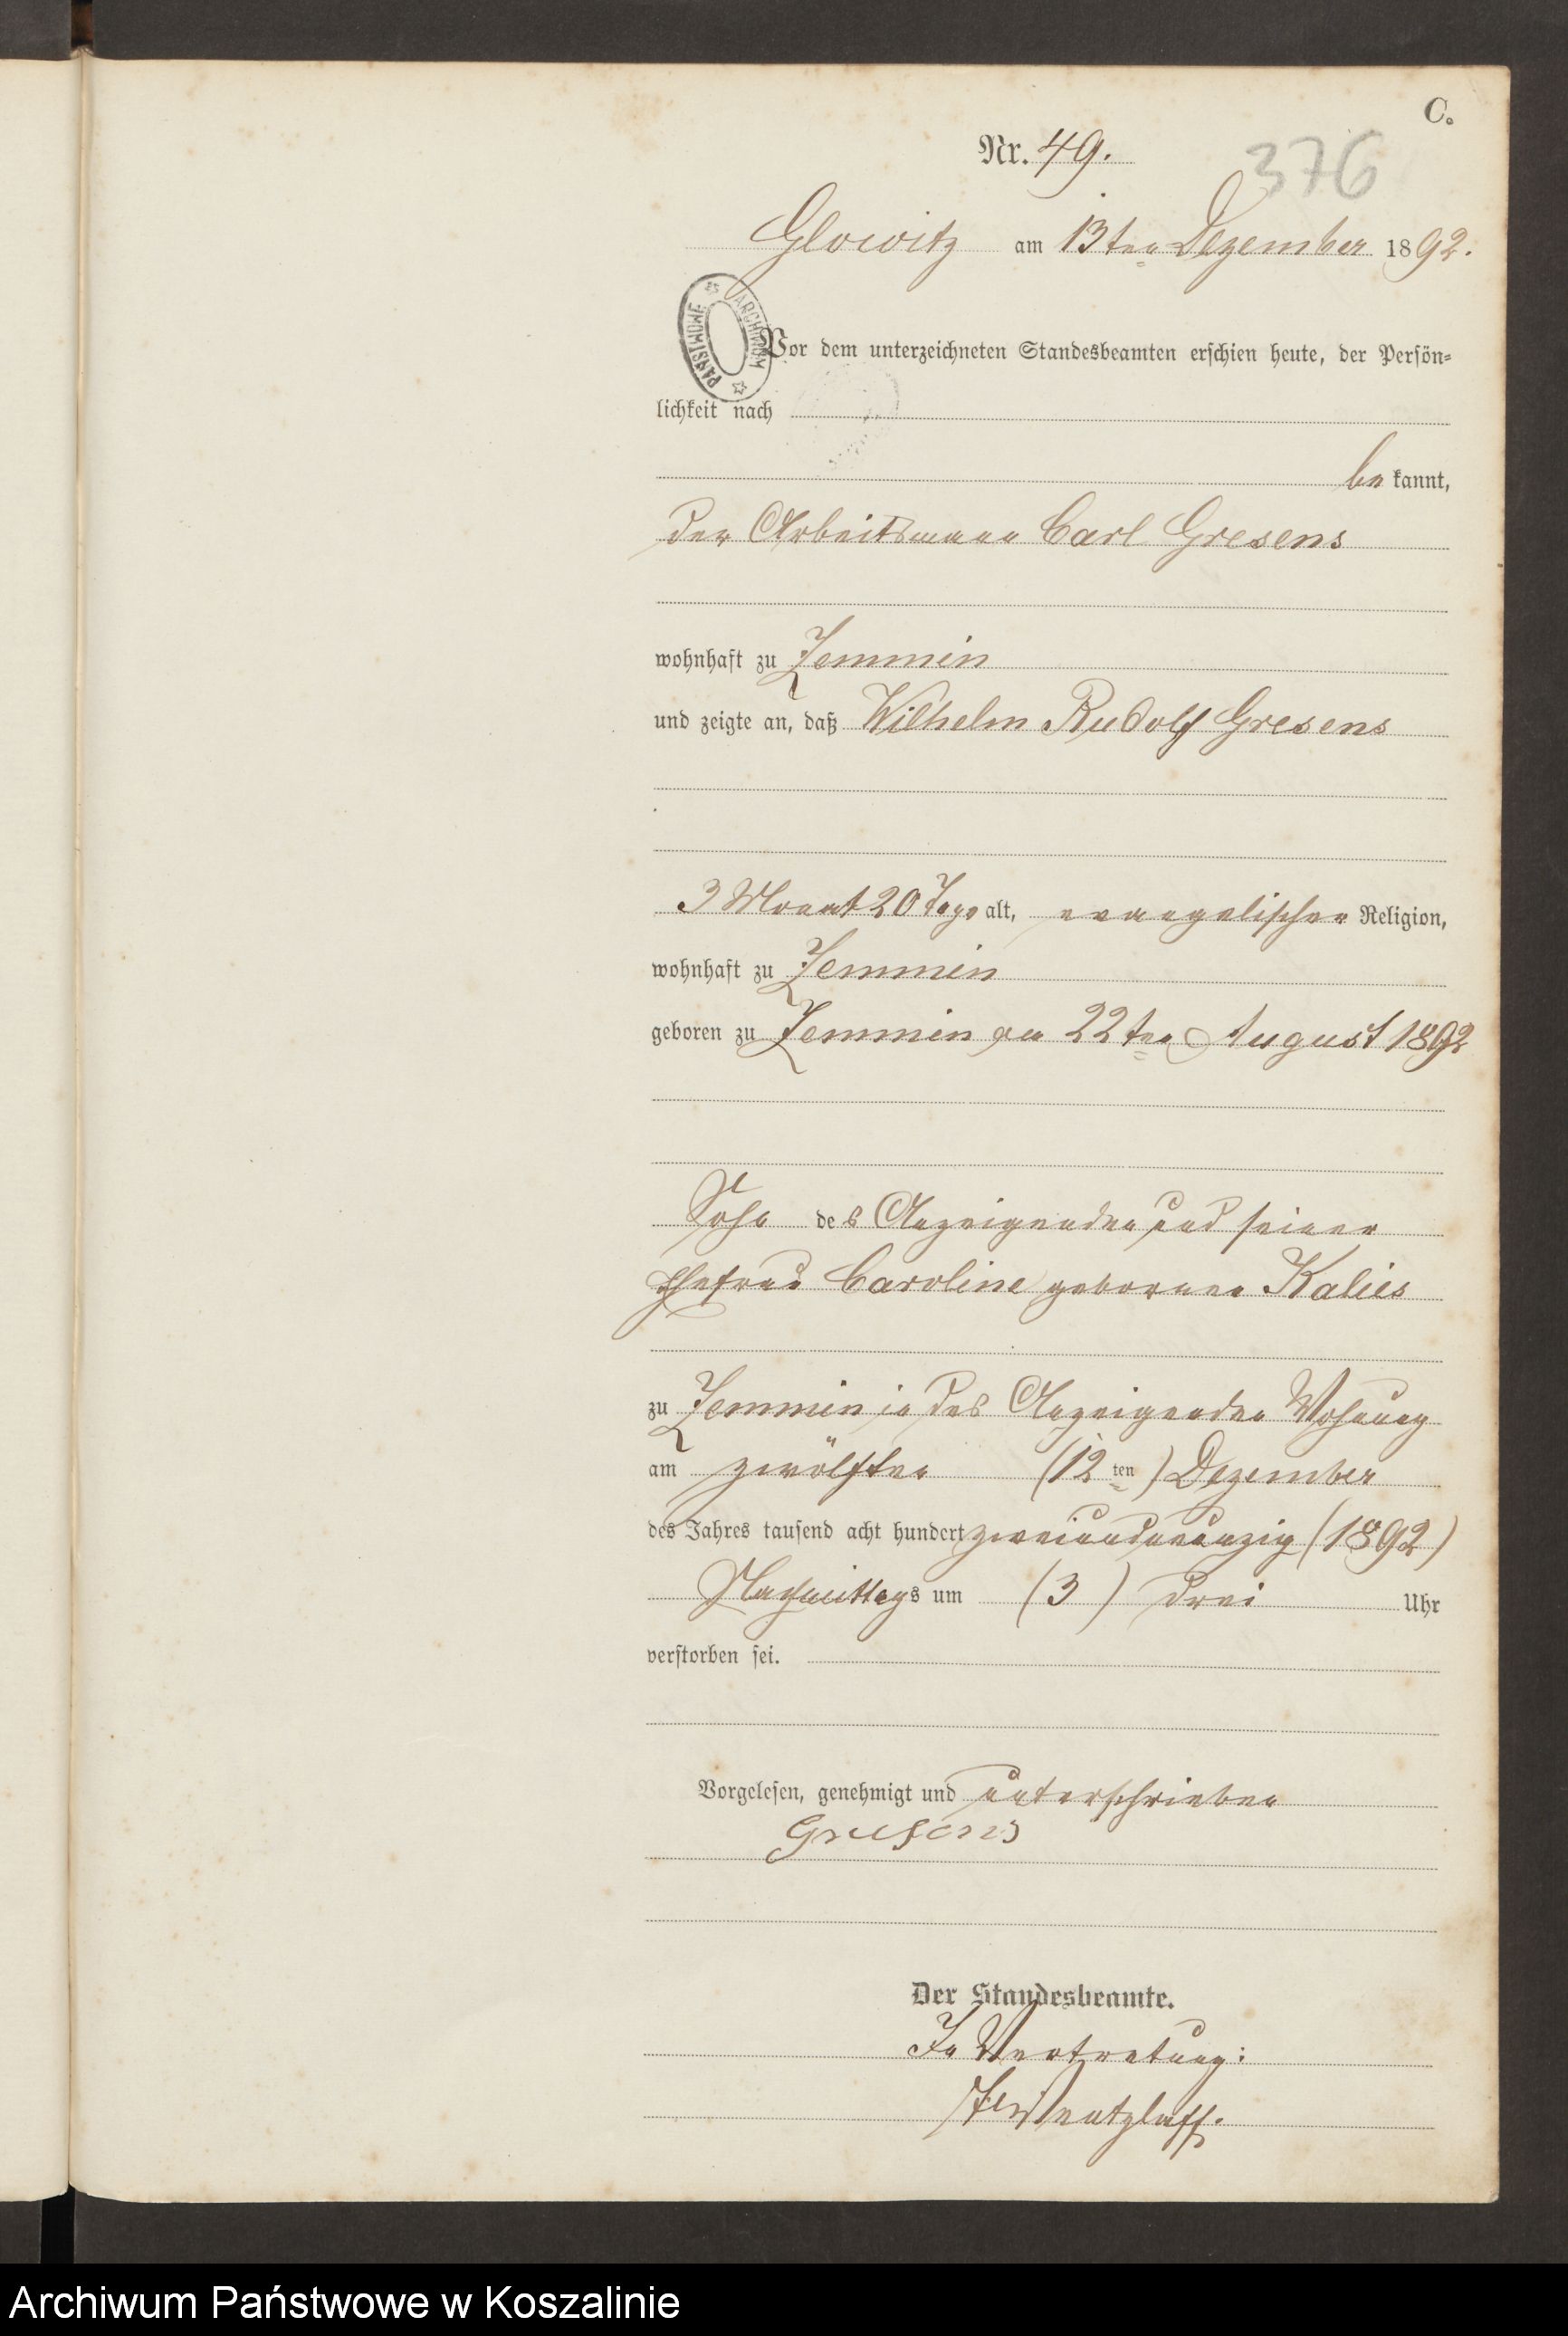 C.
Nr. 49.
376
Glowitz am 13ten Dezember 1892.
ARCHIWUM PAŃSTWOWE
Vor dem unterzeichneten Standesbeamten erschien heute, der Persön-
lichkeit nach
be kannt,
der Arbeitsmann Carl Gresens
wohnhaft zu Zemmin
und zeigte an, daß Wilhelm Rudolf Gresens
3 Monat 20 Tage alt, evangelischer Religion,
wohnhaft zu Zemmin
geboren zu Zemmin am 22ten August 1892
Sohn des Anzeigenden und seiner
Ehefrau Caroline geborenen Kalies
zu Zemmin in des Anzeigenden Wohnung
am zwölften (12 ten) Dezember
des Jahres tausend acht hundert zweiundneunzig (1892)
Nachmittags um (3) drei Uhr
verstorben sei.
Vorgelesen, genehmigt und unterschrieben
Gresens
Der Standesbeamte.
In Vertretung:
Wentzlaff.
Archiwum Państwowe w Koszalinie